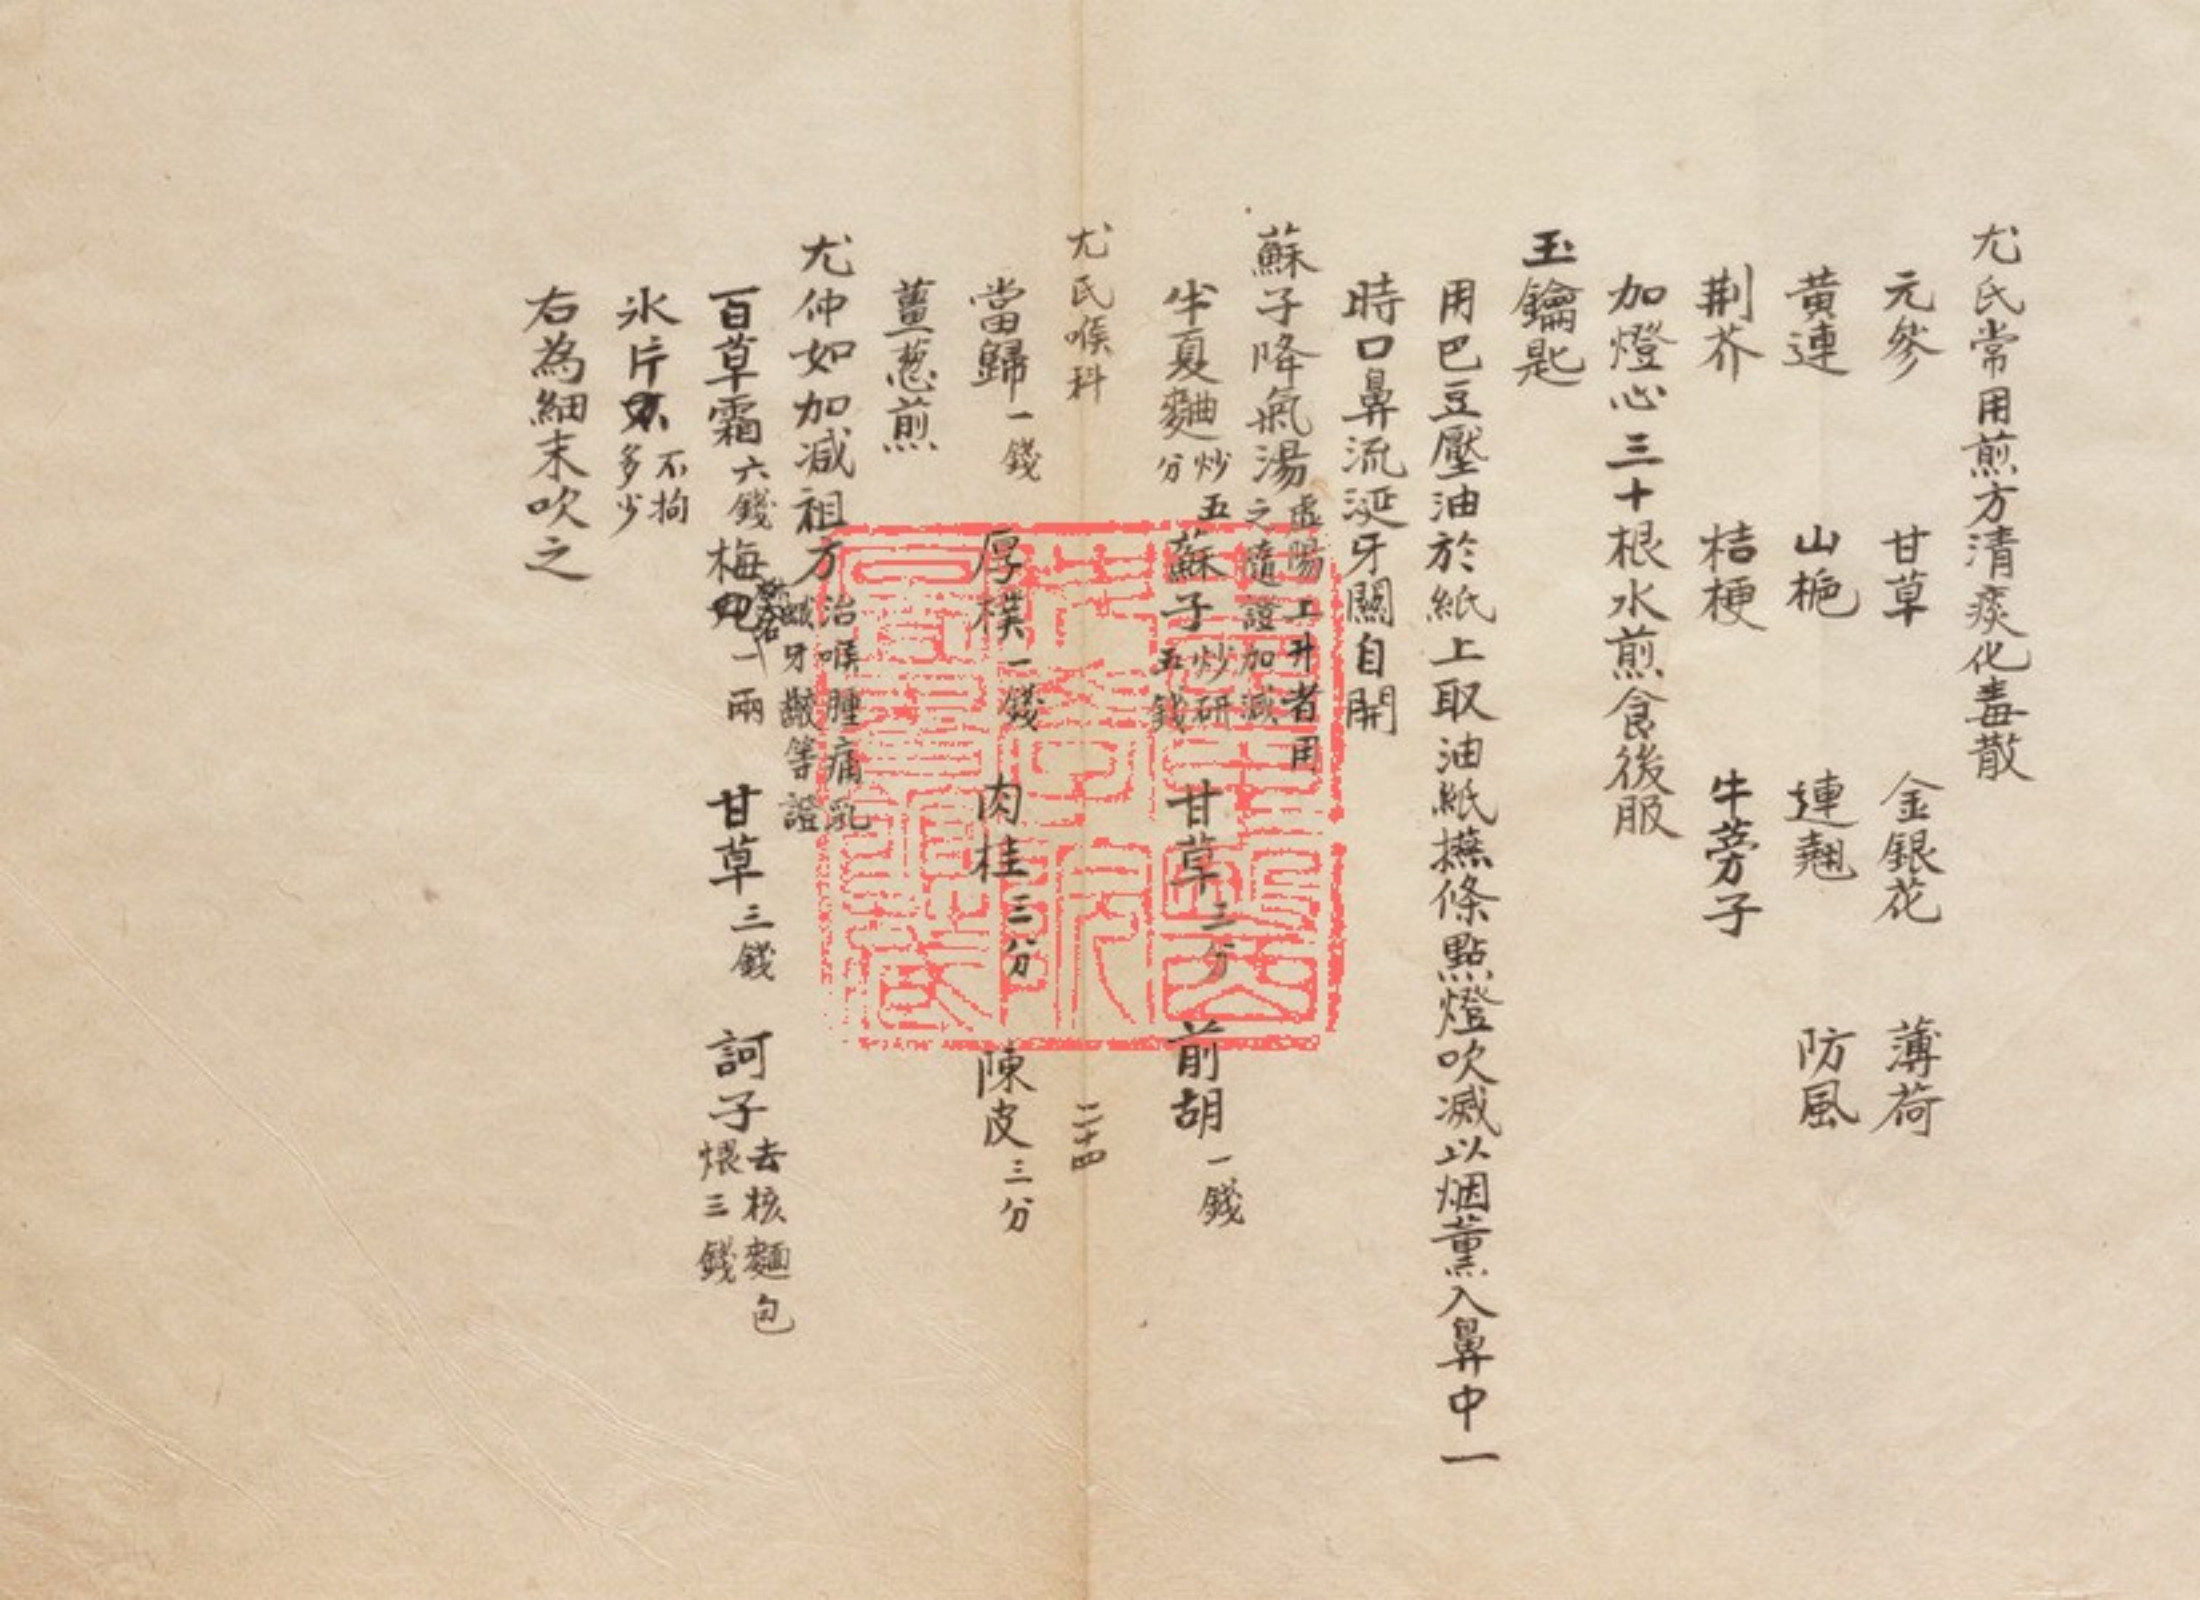 尤氏常用煎方清痰化毒散
元參　甘草　金銀花　薄荷
黃連　山梔　連翹　防風
荆芥　桔梗　牛蒡子
加燈心三十根水煎食後服
玉鑰匙
用巴豆壓油於紙上取油紙撚條點燈吹滅以烟薰入鼻中一
時口鼻流涎牙關自開
蘇子降氣湯虛陽上升者用之隨證加減
半夏麯炒五分　蘇子炒研五錢　甘草三分　前胡一錢
尤氏喉科　二十四
當歸一錢　厚樸一錢　肉桂三分　陳皮三分
薑葱煎
尤仲如加减祖方治喉腫痛乳蛾牙齦等證
百草霜六錢　梅一兩　甘草三錢　訶子去核麵包煨三錢
氷片不拘多少
右為細末吹之